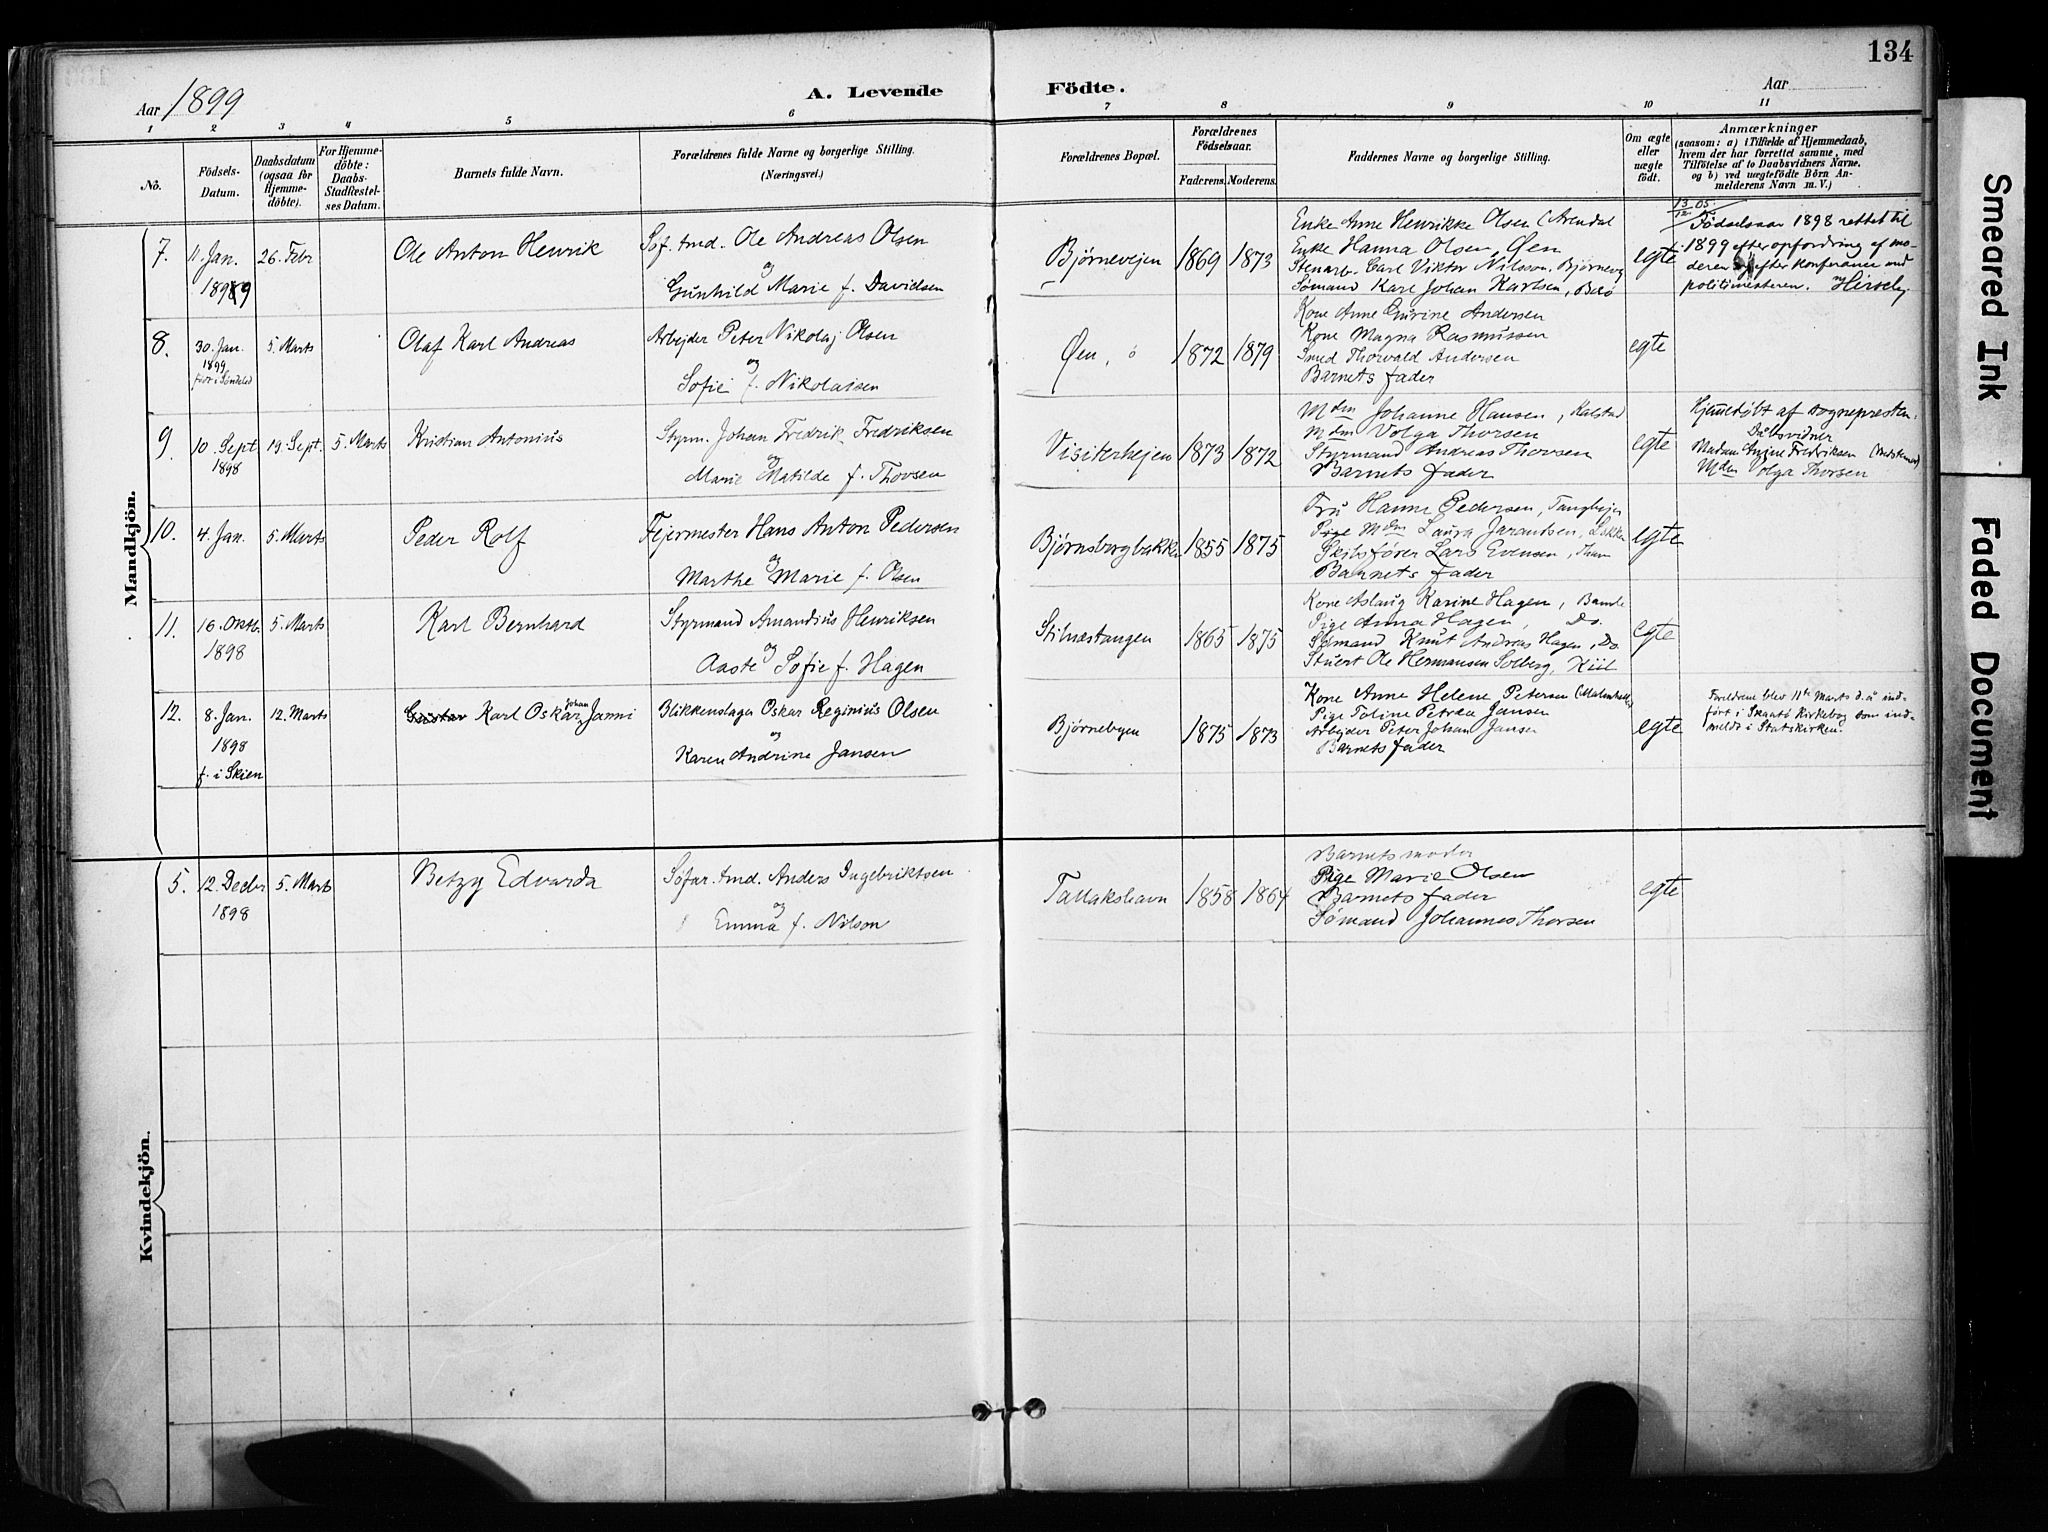 134
Aar 1899
A. Levende Födte.
Aar
1 2 3 4 5 6 7 8 9 10 11
No.
Födsels-Datum.
Daabsdatum (ogsaa for Hjemme-döbte).
For Hjemme-döbte: Daabs-Stadfæstel-ses Datum.
Barnets fulde Navn.
Forældrenes fulde Navne og borgerlige Stilling.
(Næringsvei.)
Forældrenes Bopæl.
Forældrenes Födselsaar.
Faderens. Moderens.
Faddernes Navne og borgerlige Stilling.
Om ægte eller uægte födt.
Anmærkninger
(saasom: a) i Tilfælde af Hjemmedaab,
hvem der har forrettet samme, med
Tilföielse af to Daabsvidners Navne,
og b) ved uægtefödte Börn An-
melderens Navn m. V.)
Mandkjön.
7. 11 Jan. 1899 26. Febr Ole Anton Henrik
Søf. tmd. Ole Andreas Olsen
og
Gunhild Marie f. Davidsen
Bjørnevejen 1869 1873
Enke Anne Henrikke Olsen (Arendal
Enke Hanna Olsen, Øen
Stenarb. Carl Viktor Nilsson, Bjørnevej
Sømand Karl Johan Karlsen,
egte
13/12 05.
Fødselsaar 1898 rettet til
1899 efter opfordring af mo-
deren og efter konferanse med
politimesteren.
8. 30. Jan. 1899 født i Søndeled 5. Marts Olaf Karl Andreas
Arbejder Peter Nikolaj Olsen
og
Sofie f. Nikolaisen
Øen, 1872 1879
Kone Anne Gurine Andersen
Kone Magna Rasmussen
Smed Thorvald Andersen
Barnets fader
egte
9. 10. Sept 1898 19. Sept. 5. Marts Kristian Antonius
Styrm. Johan Fredrik Fredriksen
og
Marie Matilde f. Thorsen
Visiterhejen 1873 1872
Mdm Johanne Hansen, Kalstad
Mdm Volga Thorsen
Styrmand Andreas Thorsen
Barnets fader
egte
Hjemmedøbt af sognepresten.
Dåbsvidner
Madam Fredriksen
Mdm Volga Thorsen
10. 4. Jan. 5. Marts Peder Rolf
Fejermester Hans Anton Pedersen
og
Marthe Marie f. Olsen
Bjørnsborgbakken 1855 1875
Fru Hanne Pedersen, Tanghejen
Mdm Laura
Skibsfører Lars Evensen,
Barnets fader
egte
11. 16. Oktb. 1898 5. Marts Karl Bernhard
Styrmand Amandius Henriksen
og
Aaste Sofie f. Hagen
Stilnæstangen 1865 1875
Kone Aslaug Karine Hagen, Bamle
Pige Anna Hagen, Do.
Sømand Knut Andreas Hagen, Do.
Stuert Ole Hermansen Solberg, Kiil
egte
12. 8. Jan. 1898 f. i Skien 12. Marts Gustav Karl Oskar Johan Janni
Blikkenslager Oskar Reginius Olsen
og
Karen Andrine Jansen
Bjørnebyen 1875 1873
Kone Anne Helene Petersen
Pige Toline Petrea Jansen
Arbejder Peter Johan Jansen
Barnets fader
egte
Foreldrene blev 11te Marts d. å ind-
ført i Skaatø Kirkebog som ind-
meldt i Statskirken.
Kvindekjön.
5. 12. Decbr 1898 5. Marts Betzy Edvarda
Søfar. tmd. Anders Ingebriktsen
og
Emma f. Nilson
Tallakshavn 1858 1864
Barnets moder
Pige Marie Olsen
Barnets fader
Sømand Johannes Thorsen
egte
Smeared Ink
Faded Document